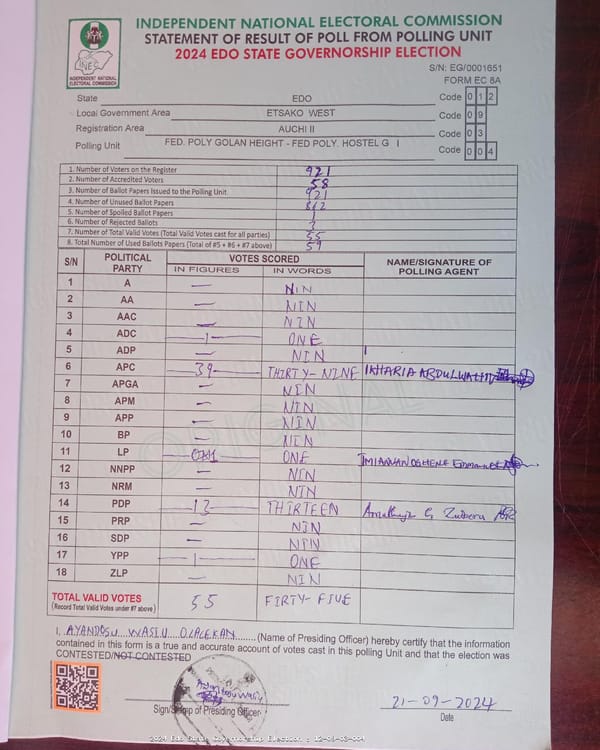 INDEPENDENT NATIONAL ELECTORAL COMMISSION
STATEMENT OF RESULT OF POLL FROM POLLING UNIT
2024 EDO STATE GOVERNORSHIP ELECTION
INEC
INDEPENDENT NATIONAL
ELECTORAL COMMISSION
S/N: EG/0001651
FORM EC 8A
State EDO Code 0 1 2
Local Government Area ETSAKO WEST Code 0 9
Registration Area AUCHI II Code 0 3
Polling Unit FED. POLY GOLAN HEIGHT - FED POLY. HOSTEL G I Code 0 0 4
1. Number of Voters on the Register 921
2. Number of Accredited Voters 58
3. Number of Ballot Papers Issued to the Polling Unit 921
4. Number of Unused Ballot Papers 862
5. Number of Spoiled Ballot Papers 1
6. Number of Rejected Ballots
7. Number of Total Valid Votes (Total Valid Votes cast for all parties) 55
8. Total Number of Used Ballots Papers (Total of #5 + #6 + #7 above) 59
S/N POLITICAL PARTY VOTES SCORED NAME/SIGNATURE OF POLLING AGENT
IN FIGURES IN WORDS
1 A — NIN
2 AA — NIN
3 AAC — NIN
4 ADC 1 ONE
5 ADP — NIN
6 APC 39 THIRTY-NINE IKHARIA ABDULWAHID
7 APGA — NIN
8 APM — NIN
9 APP — NIN
10 BP — NIN
11 LP ONE
12 NNPP — NIN
13 NRM — NIN
14 PDP 13 THIRTEEN
15 PRP — NIN
16 SDP — NIN
17 YPP 1 ONE
18 ZLP — NIN
TOTAL VALID VOTES 55 FIRTY-FIVE
(Record Total Valid Votes under #7 above)
I, AYANDOSU WASIU OLALEKAN (Name of Presiding Officer) hereby certify that the information
contained in this form is a true and accurate account of votes cast in this polling Unit and that the election was
CONTESTED/NOT CONTESTED
Sign/Stamp of Presiding Officer
21-09-2024
Date
2024 Edo State Governorship Election : 12-09-03-004
ORIGINAL